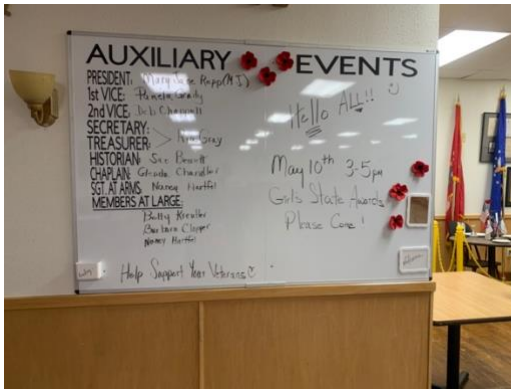 AUXILIARY EVENTS
PRESIDENT: Mary Jane Rapp (MJ)
1st VICE: Pamela Grady
2nd VICE: Deb
SECRETARY:
TREASURER: Gray
HISTORIAN: Sue
CHAPLAIN: Glenda Chandler
SGT. AT ARMS Nancy Hartfel
MEMBERS AT LARGE:
Betty
Barbara
Nancy Hartfel
Help Support Your Veterans
Hello ALL!!
May 10th 3-5pm
Girl's State Awards
Please Come!